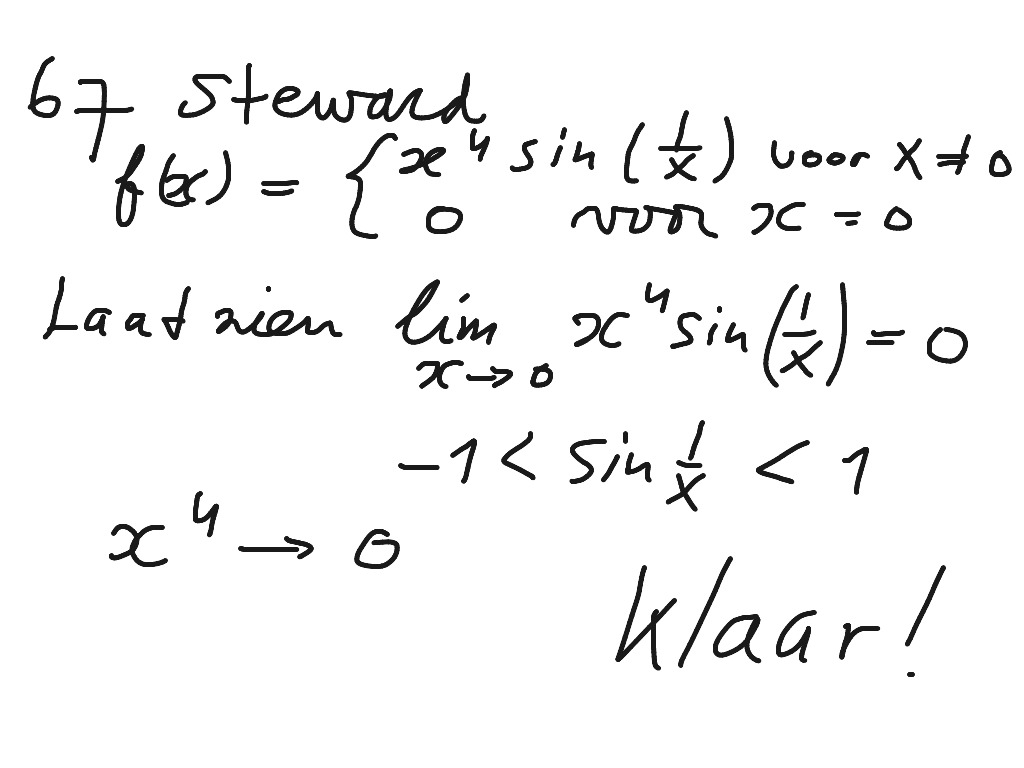 67 Steward
f(x) = { x⁴ sin(1/x) voor x ≠ 0
0 voor x = 0
Laat zien lim x→0 x⁴ sin(1/x) = 0
-1 < sin 1/x < 1
x⁴ → 0
Klaar!